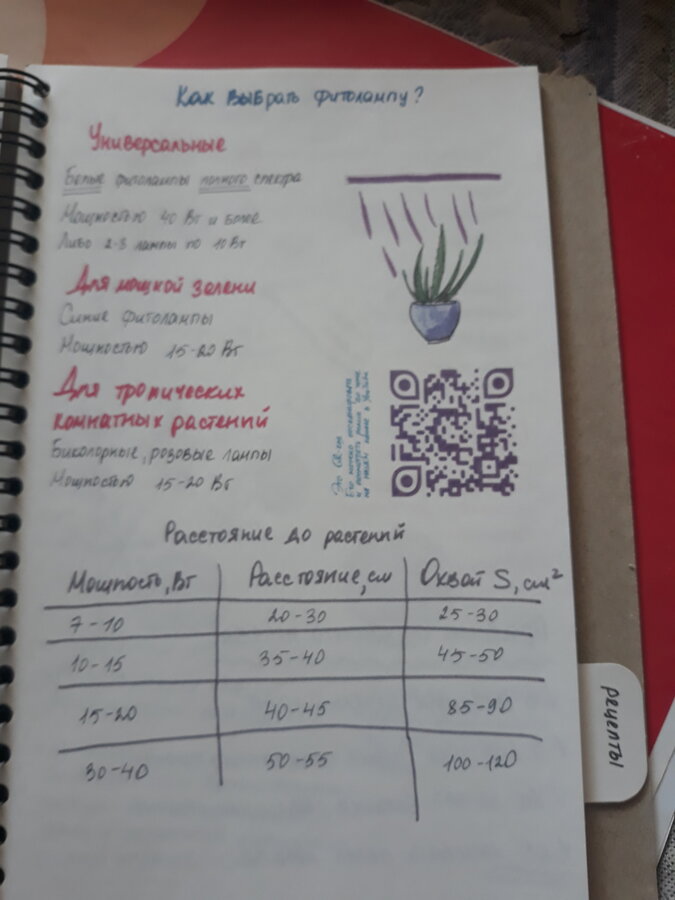 Как выбрать фитолампу?
Универсальные
Белые фитолампы полного спектра
Мощностью 40 Вт и более
Либо 2-3 лампы по 10 Вт
Для мощной зелени
Синие фитолампы
Мощностью 15-20 Вт
Для тропических
комнатных растений
Биколорные, розовые лампы
Мощностью 15-20 Вт
Это QR-код
Его можно отсканировать
и посмотреть ролик по теме
на нашем канале в YouTube
Расстояние до растений
Мощность, Вт Расстояние, см Охват S, см²
7-10 20-30 25-30
10-15 35-40 45-50
15-20 40-45 85-90
30-40 50-55 100-120
рецепты